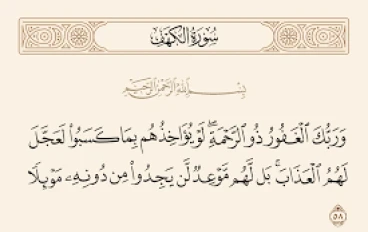 سُورَةُ الكَهْفِ
بِسْمِ اللَّهِ الرَّحْمَٰنِ الرَّحِيمِ
وَرَبُّكَ ٱلْغَفُورُ ذُو ٱلرَّحْمَةِۖ لَوْ يُؤَاخِذُهُم بِمَا كَسَبُوا۟ لَعَجَّلَ
لَهُمُ ٱلْعَذَابَۚ بَل لَّهُم مَّوْعِدٌ لَّن يَجِدُوا۟ مِن دُونِهِۦ مَوْئِلًا
٥٨